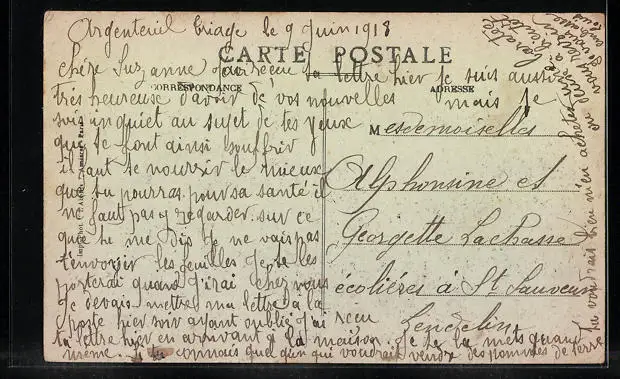 Argenteuil triage le 9 juin 1918
CARTE POSTALE
chère Suzanne j'ai recu ta lettre hier je suis aussi
CORRESPONDANCE
ADRESSE
très heureuse d'avoir de vos nouvelles mais je
suis inquiet au sujet de tes yeux
qui te font ainsi souffrir
il faut se nourrir le mieux
que tu pourras pour sa santé il
ne faut pas y regarder sur ce
que tu me dis je ne vais pas
t'envoyer les feuilles je te les
porterai quand j'irai chez vous
Je devais mettre ma lettre à la
poste hier soir ayant oublié j'ai recu
ta lettre hier en arrivant à la maison. Je te la mets quand
même. si tu connais quelqu'un qui voudrait vendre des pommes de terre
tu voudrais bien m'en acheter
Mesdemoiselles
Alphonsine et
Georgette Lachasse
écolières à St Sauveur
Lendelin